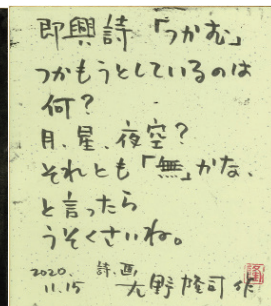 即興詩「つかむ」
つかもうとしているのは
何?
月、星、夜空?
それとも「無」かな、
と言ったら
うそくさいね。
2020.
11.15
詩・画
大野隆司 作